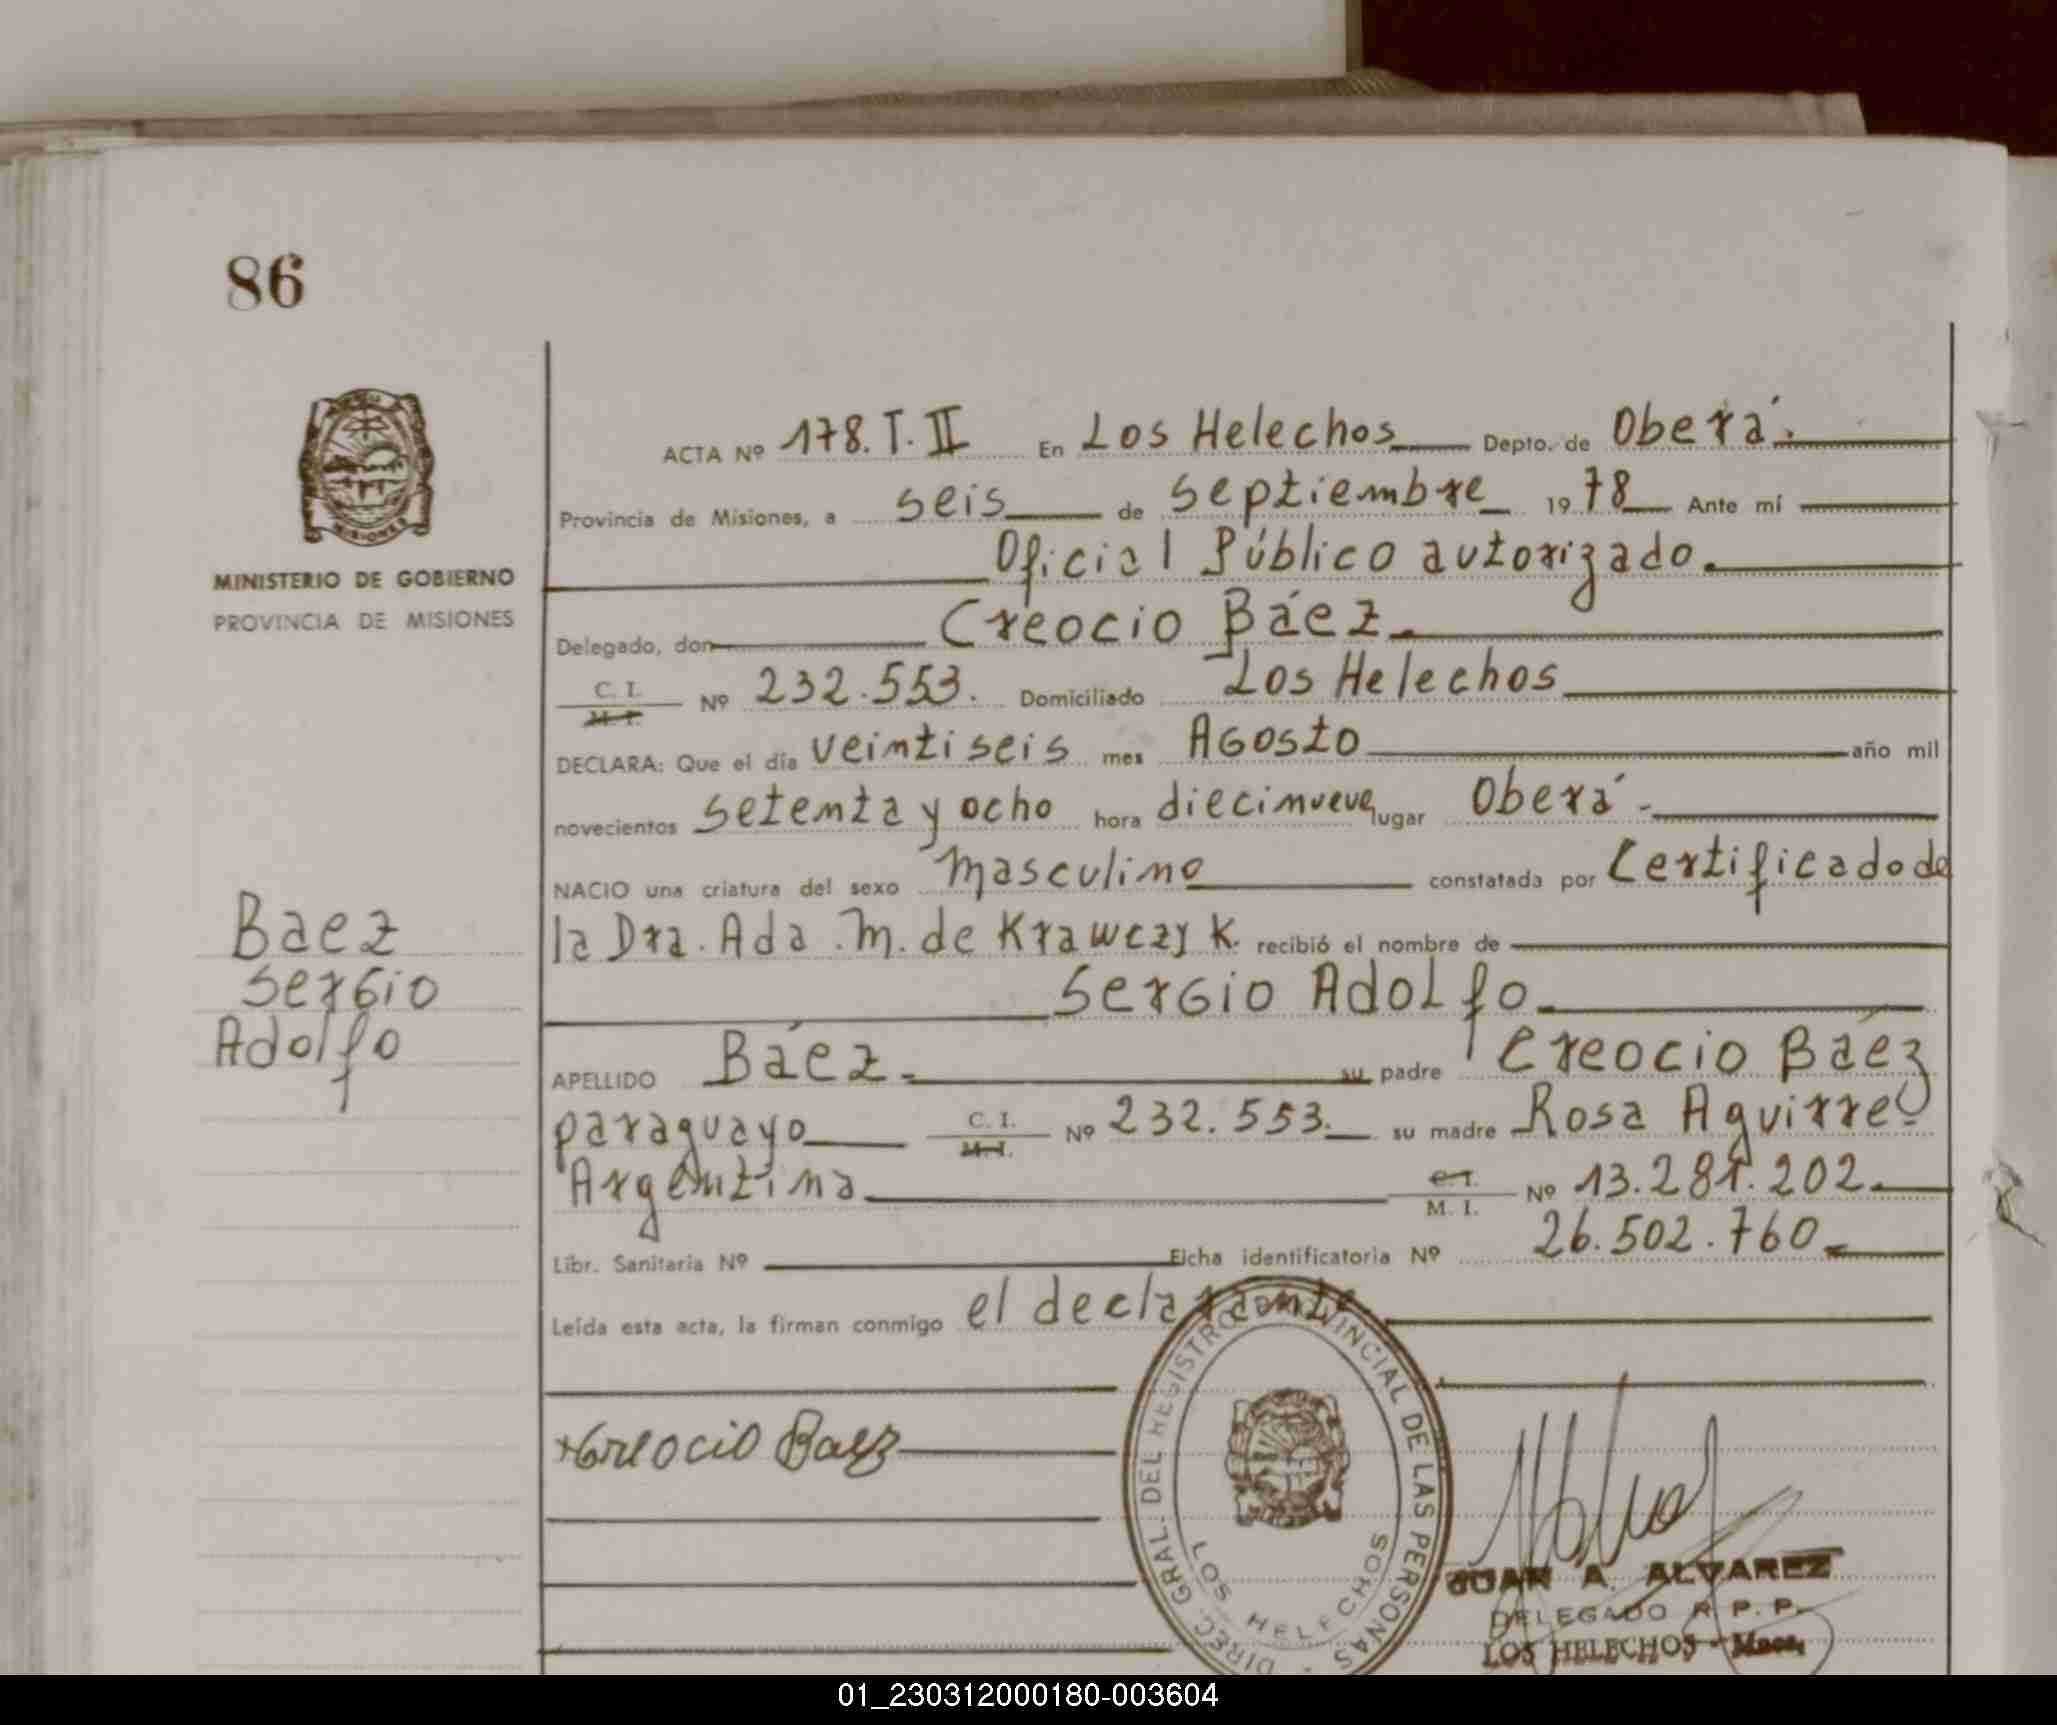 86
MINISTERIO DE GOBIERNO
PROVINCIA DE MISIONES
Baez
Sergio
Adolfo
ACTA Nº 178. T. II En Los Helechos Depto. de Oberá.
Provincia de Misiones, a seis de septiembre 1978 Ante mí
Oficial Público autorizado.
Delegado, don Creocio Báez.
C. I. M. I. Nº 232.553. Domiciliado Los Helechos
DECLARA: Que el día veintiseis mes Agosto año mil
novecientos setenta y ocho hora diecinueve lugar Oberá.
NACIO una criatura del sexo masculino constatada por Certificado de
la Dra. Ada. M. de Krawczyk. recibió el nombre de
Sergio Adolfo.
APELLIDO Báez. su padre Creocio Báez
paraguayo C. I. M. I. Nº 232.553. su madre Rosa Aguirre
Argentina C. I. M. I. Nº 13.281.202.
Libr. Sanitaria Nº Ficha identificatoria Nº 26.502.760
Leída esta acta, la firman conmigo el declarante.
Creocio Baez
DIREC. GRAL. DEL REGISTRO PROVINCIAL DE LAS PERSONAS
LOS HELECHOS
JUAN A. ALVAREZ
DELEGADO R. P. P.
LOS HELECHOS - Mnes.
01_230312000180-003604